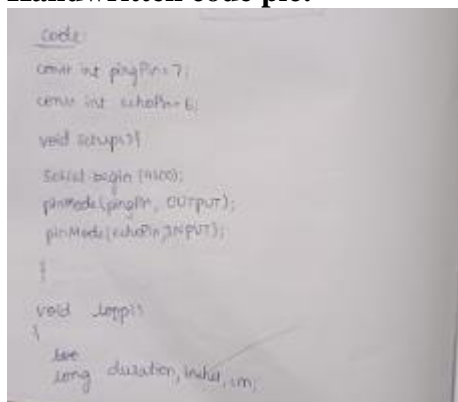 Handwritten code pic:
code:
const int pingPin = 7;
const int echoPin = 6;
void setup() {
Serial.begin (9600);
pinMode(pingPin, OUTPUT);
pinMode(echoPin, INPUT);
}
void loop()
{
long duration, inches, cm;